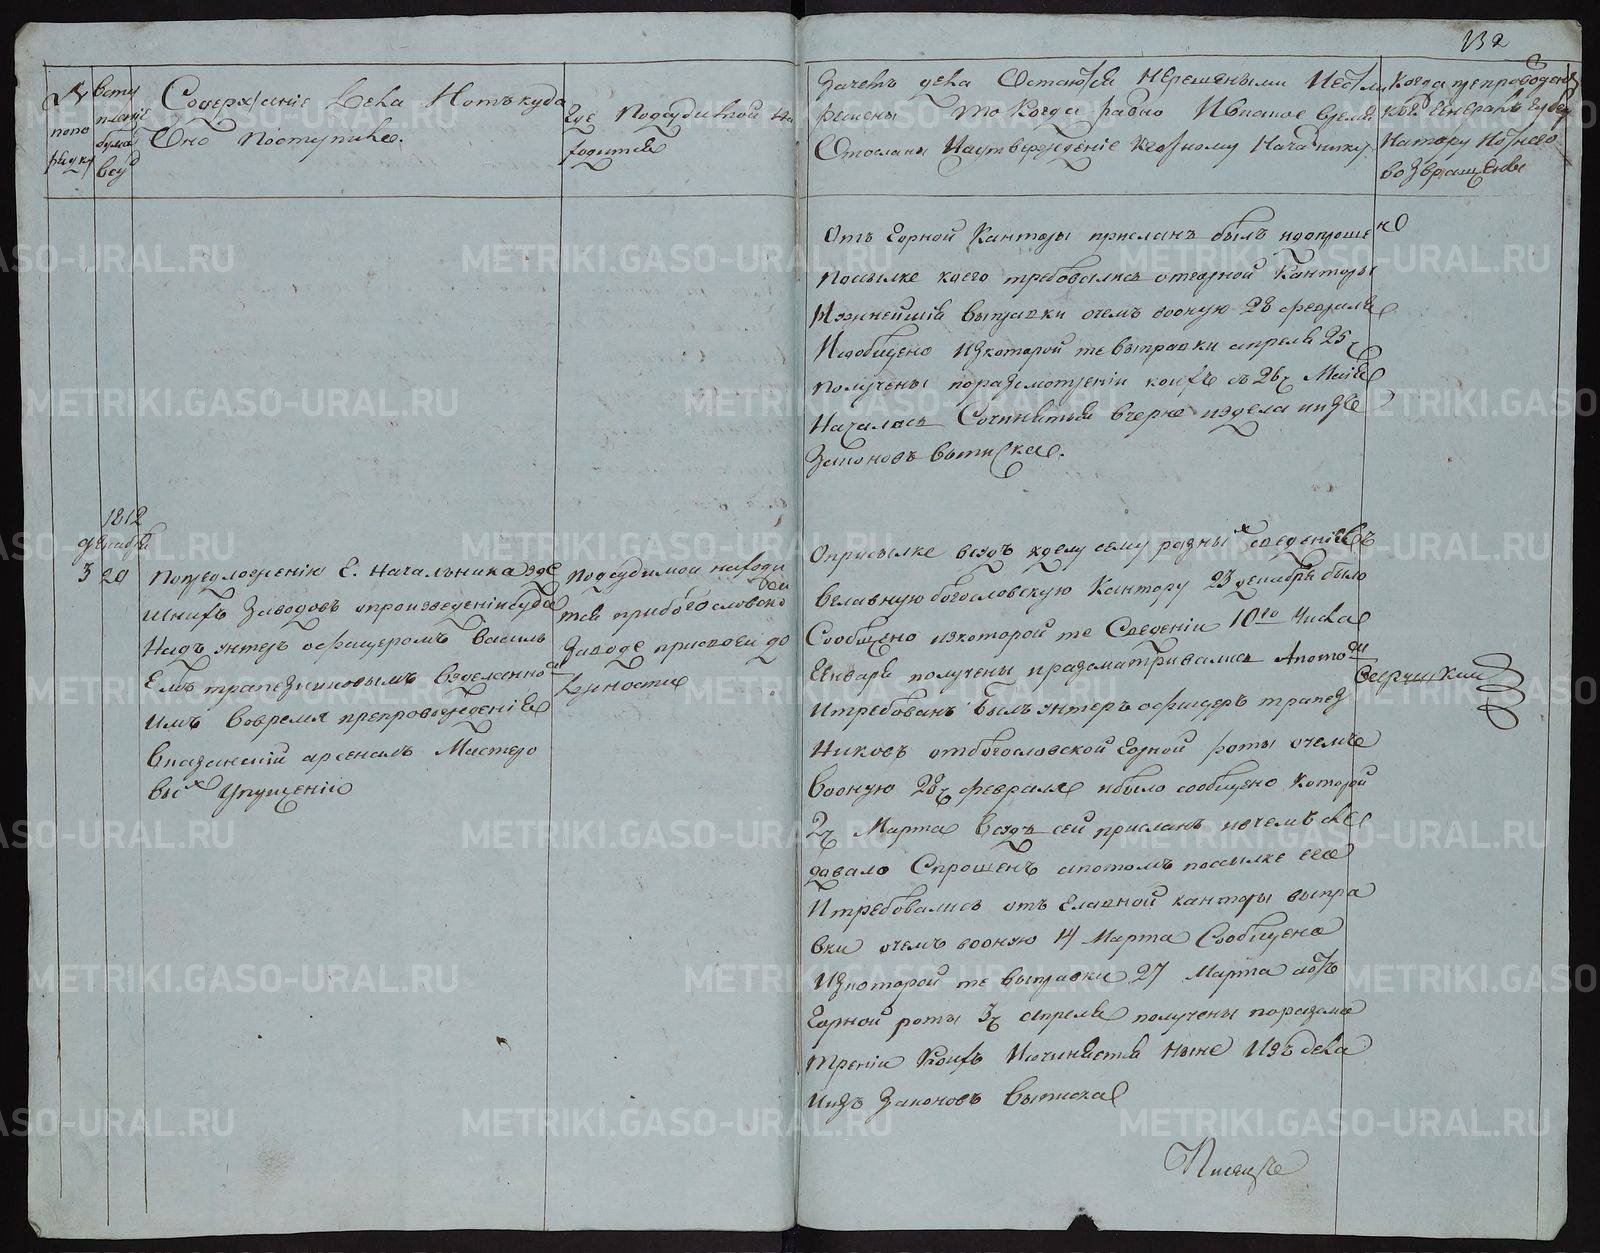 132
№
попо
рядку
вспу
Содержаніе дела Иоткуда
Оно Поступило.
Где Подсудимой на
ходится
Зачемъ дела Остаются Нерешеными Иестли
решены То Когда радно Ивкакое время
Отосланы Наутвержденіе Кгорному Началнику
Когда препровожден
воЗвращены
Отъ Горной Канторы присланъ былъ идопроше но
посылке коего требовались отгорной Канторы
Нужнейшія выправки очемъ вооную 28 февраля
Исообщено Изкоторой те выправки апреля 25
получены поразсмотреніи коихъ съ 26 Маія
Началась Сочинятся вчерне издела инзъ
Законовъ выписка.
1812
декабря
3 20
Попредложенію Г. Начальника зде
шнихъ Заводовъ опроизведеніи суда
Надъ унтеръ офицеромъ Василь
емъ трапезниковымъ Взделанно
имъ Вовремя препровожденія
Вказанскій арсеналъ Мастеро
выхъ Упущеніи
Подсудимой находи
тся прибогословско
Заводе присвоей до
лжности
Оприсылке всудъ кделу сему разныхъ сведеніевъ
Вглавную богословскую Кантору 23 декабря было
Сообщено изкоторой те Сведеніи 10го Числа
Генваря получены иразсматривались Апото
Итребованъ былъ унтеръ офицеръ трапез
Никовъ отбогословской Горной роты очемъ
Вооную 28 февраля ибыло сообщено Которой
2 Марта Всудъ сей присланъ ночемъ сле
довало Спрошенъ апотомъ посылке его
Итребовались отъ Главной канторы выпра
вки очемъ вооную 14 Марта Сообщено
Изкоторой те выправки 27 Марта аотъ
Горной роты 3 апреля получены поразсмо
треніи Коихъ Исочиняется ныне Изъ дела
Инзъ Законовъ Выписка